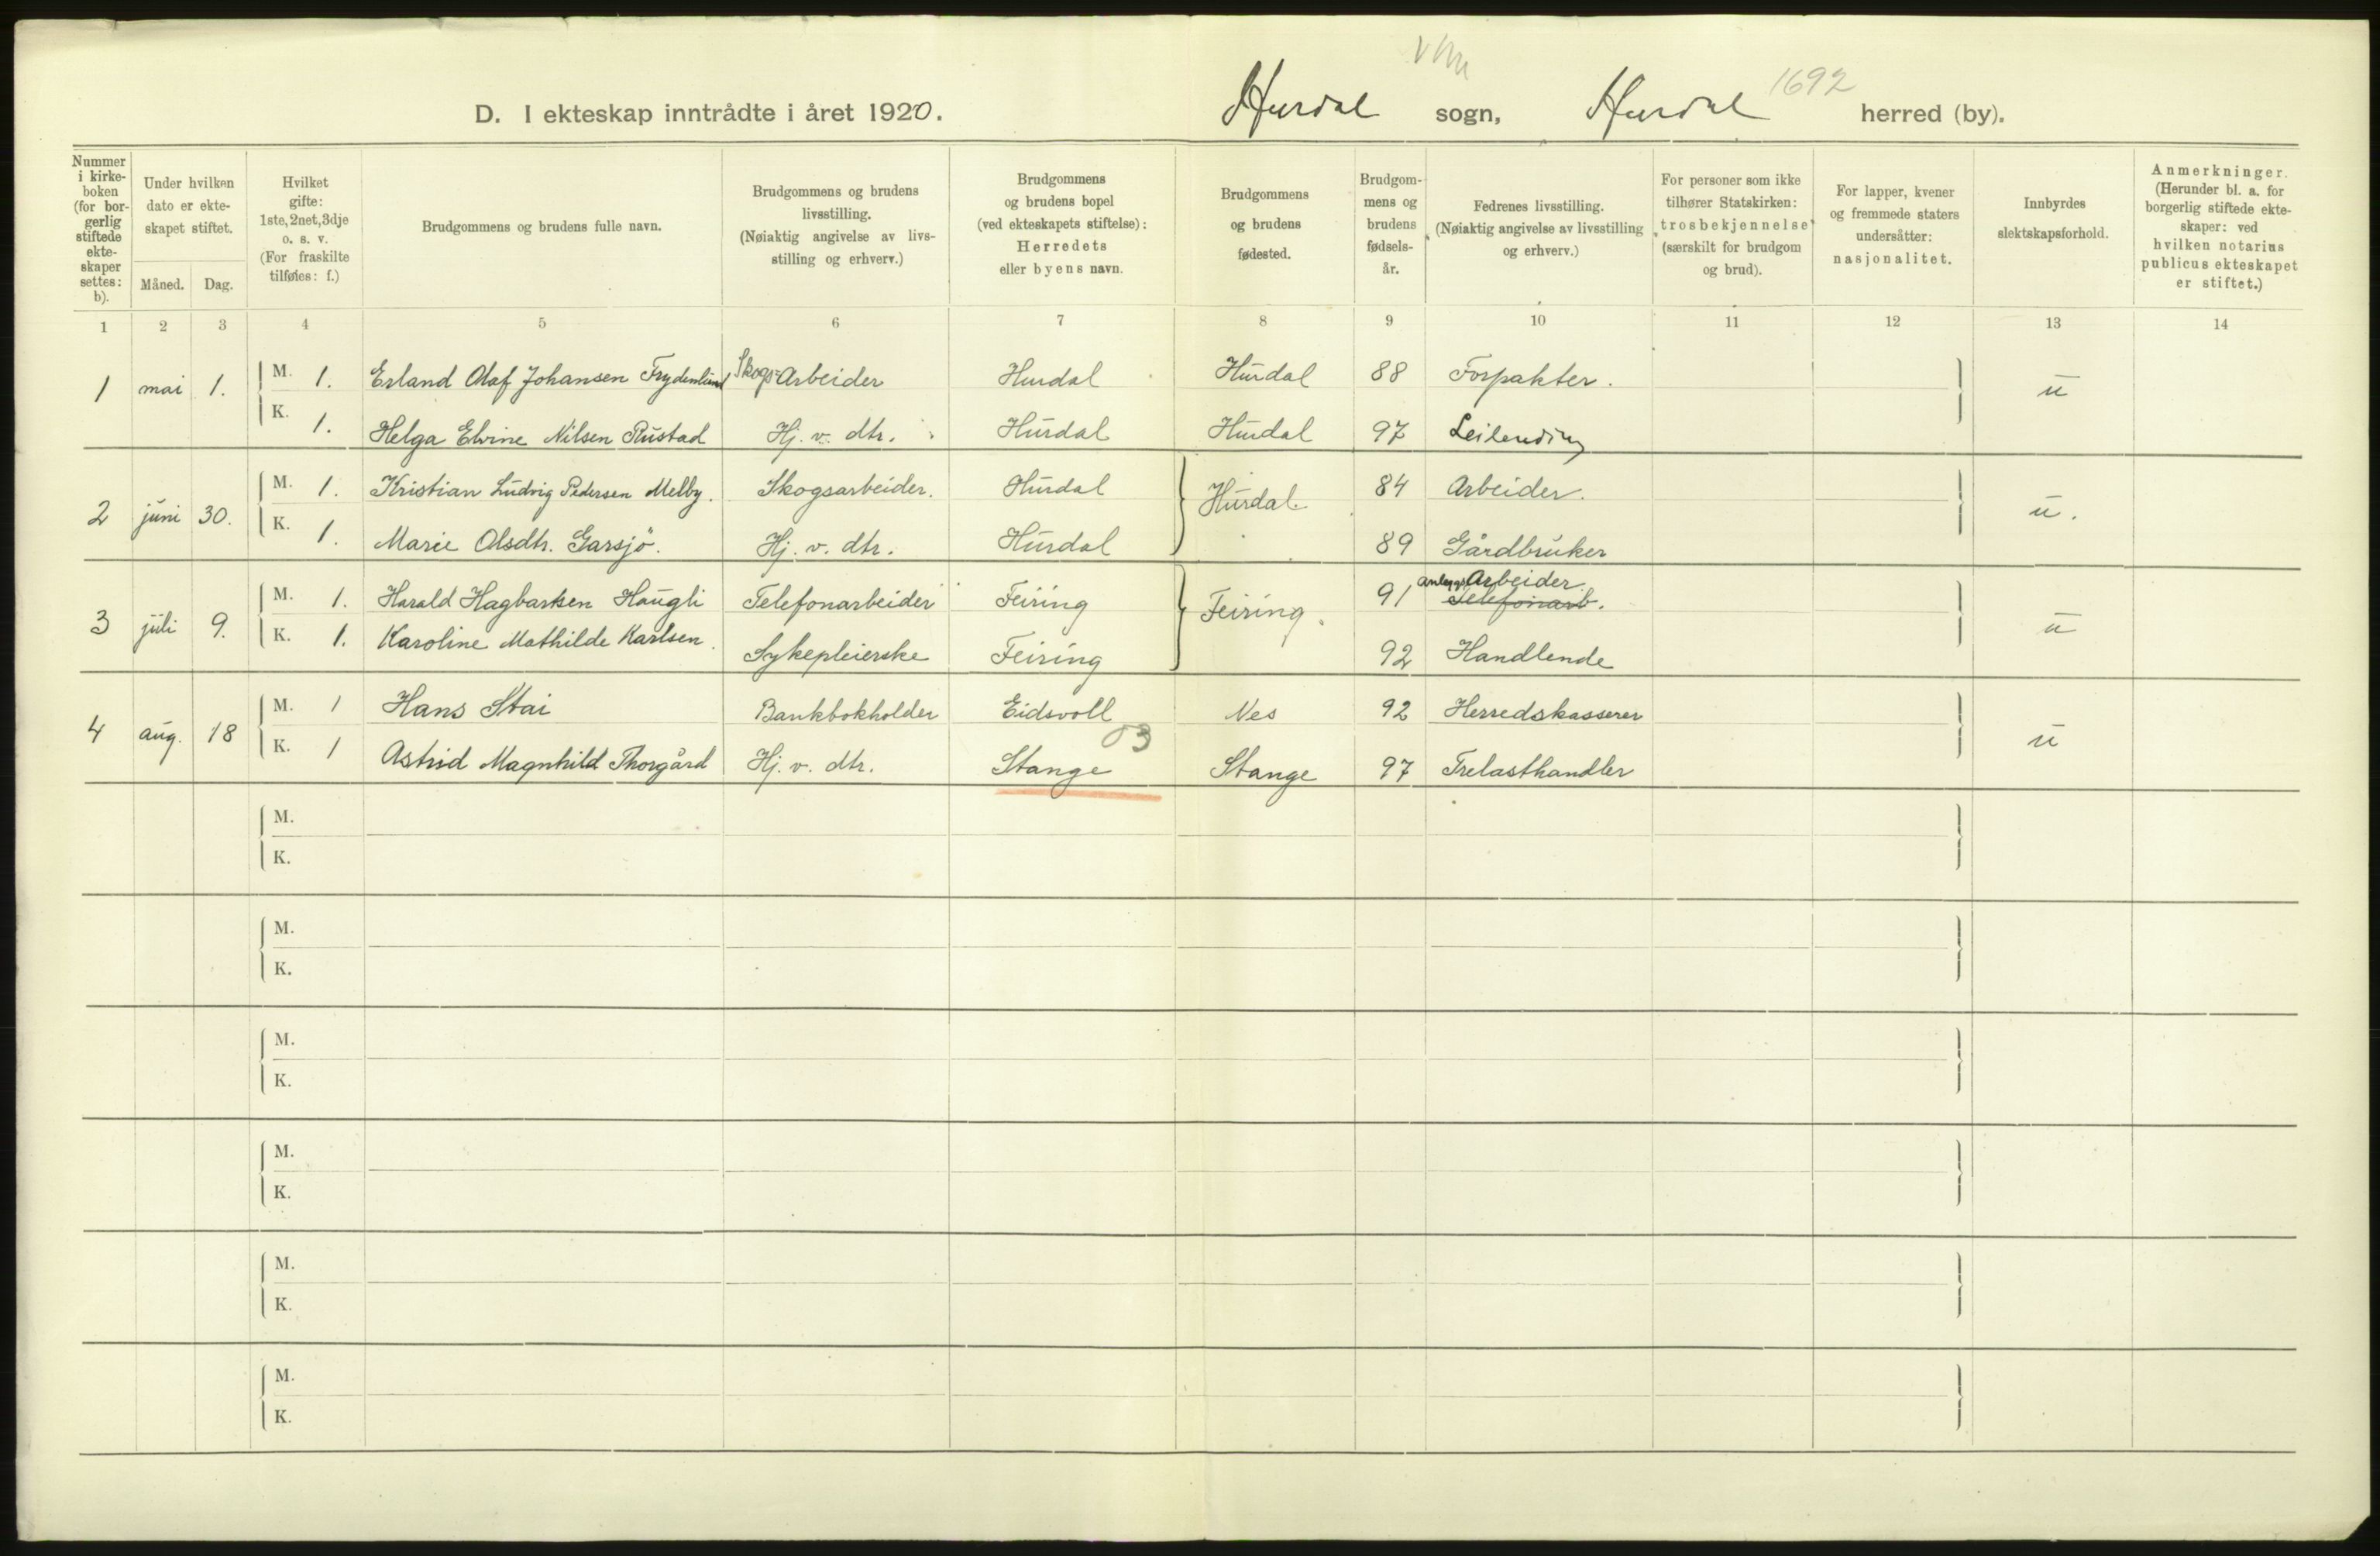 1692
D. I ekteskap inntrådte i året 1920. Hurdal sogn, Hurdal herred (by).
Nummer i kirke-boken (for bor-gerlig stiftede ekte-skaper settes: b).
Under hvilken dato er ekte-skapet stiftet.
Måned. Dag.
Hvilket gifte: 1ste, 2net, 3dje o. s. v. (For fraskilte tilføies: f.)
Brudgommens og brudens fulle navn.
Brudgommens og brudens livsstilling. (Nøiaktig angivelse av livs-stilling og erhverv.)
Brudgommens og brudens bopel (ved ekteskapets stiftelse): Herredets eller byens navn.
Brudgommens og brudens fødested.
Brudgom-mens og brudens fødsels-år.
Fedrenes livsstilling. (Nøiaktig angivelse av livsstilling og erhverv.)
For personer som ikke tilhører Statskirken: trosbekjennelse (særskilt for brudgom og brud).
For lapper, kvener og fremmede staters undersåtter: nasjonalitet.
Innbyrdes slektskapsforhold.
Anmerkninger. (Herunder bl. a. for borgerlig stiftede ekte-skaper: ved hvilken notarius publicus ekteskapet er stiftet.)
1 2 3 4 5 6 7 8 9 10 11 12 13 14
1 mai 1. M. 1. Erland Olaf Johansen Frydenlund Skogs-Arbeider Hurdal Hurdal 88 Forpakter. u
K. 1. Helga Elvine Nilsen Rustad Hj. v. dtr. Hurdal Hurdal 97 Leilending
2 juni 30. M. 1. Kristian Ludvig Pedersen Melby. Skogsarbeider. Hurdal Hurdal. 84 Arbeider. u.
K. 1. Marie Olsdtr. Garsjö. Hj. v. dtr. Hurdal 89 Gårdbruker
3 juli 9. M. 1. Harald Hagbartsen Haugli Telefonarbeider Feiring Feiring. 91 anleggsArbeider. Telefonarb. u
K. 1. Karoline Mathilde Karlsen. Sykepleierske Feiring 92 Handlende
4 aug. 18 M. 1 Hans Stai Bankbokholder Eidsvoll Nes 92 Herredskasserer u
03
K. 1 Astrid Magnhild Thorgård Hj. v. dtr. Stange Stange 97 Trelasthandler
M.
K.
M.
K.
M.
K.
M.
K.
M.
K.
M.
K.